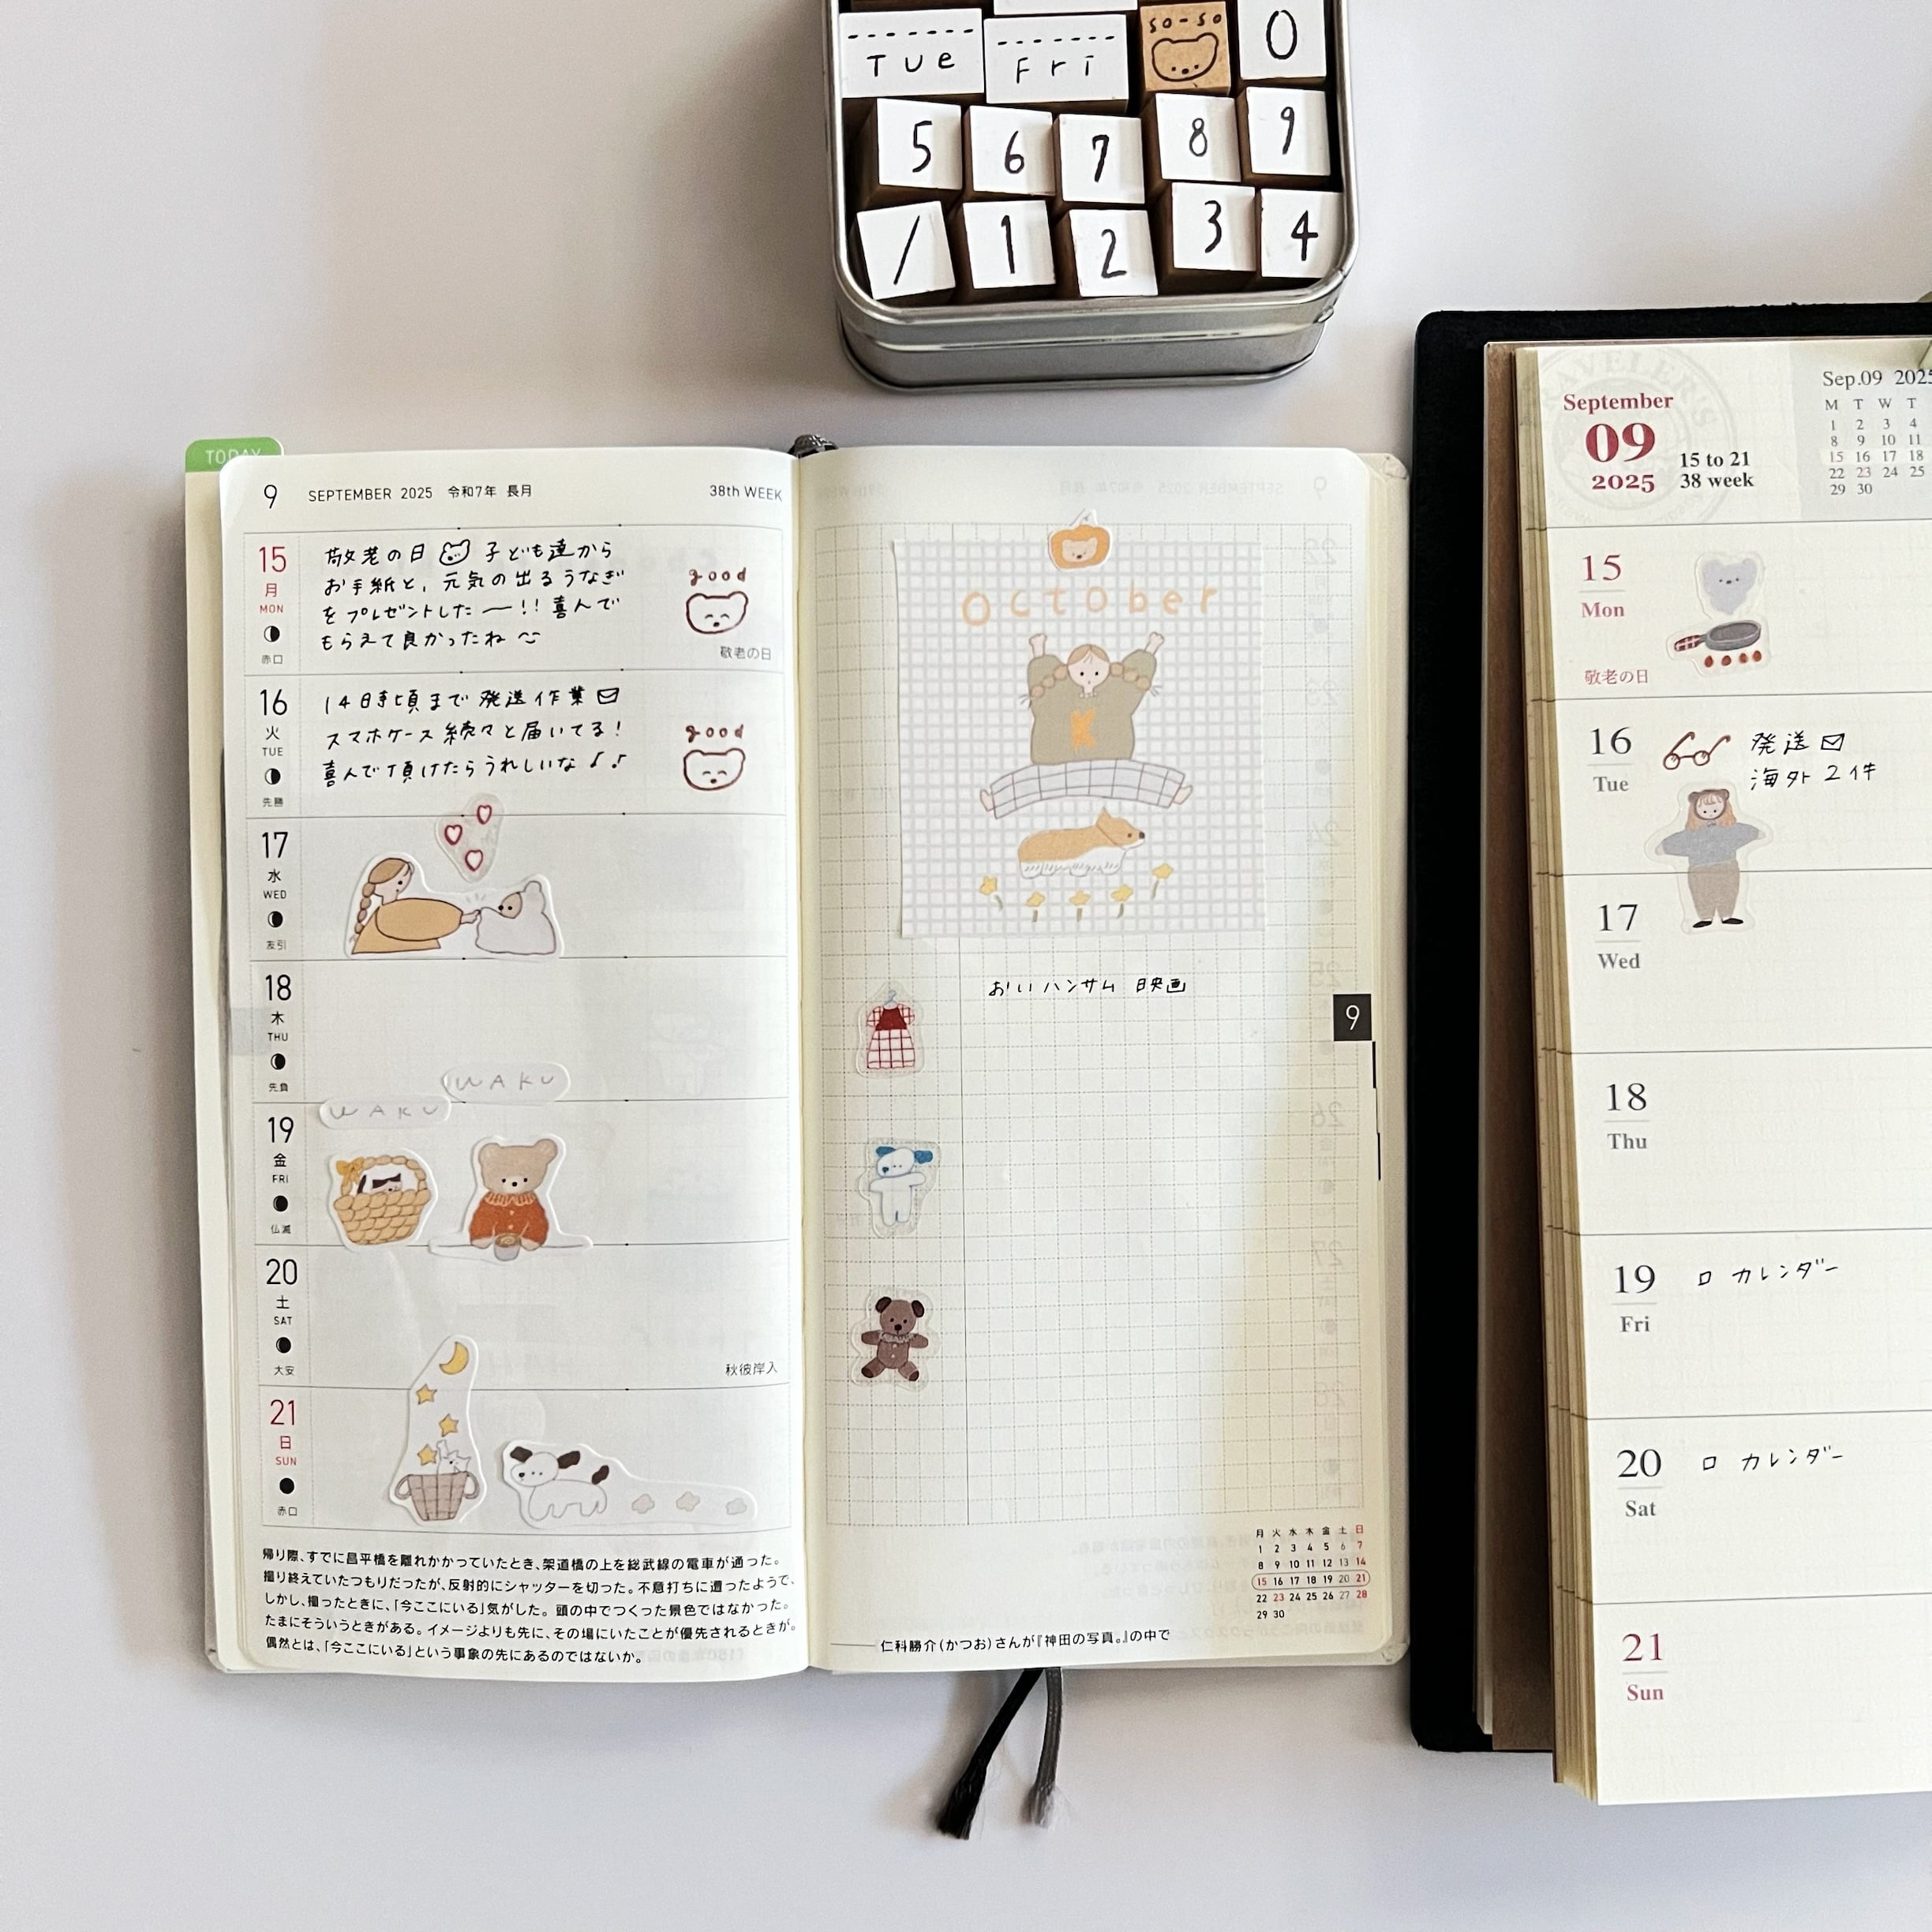 Tue Fri so-so 0
5 6 7 8 9
/ 1 2 3 4
TODAY
9 SEPTEMBER 2025 令和7年 長月 38th WEEK
15
月
MON
赤口
敬老の日 子ども達から
お手紙と、元気の出るうなぎ
をプレゼントした ー!! 喜んで
もらえて良かったね
good
敬老の日
16
火
TUE
先勝
14時頃まで 発送作業
スマホケース 続々と届いてる!
喜んで頂けたらうれしいな ♪♪
good
17
水
WED
友引
18
木
THU
先負
WAKU
WAKU
19
金
FRI
仏滅
20
土
SAT
大安
秋彼岸入
21
日
SUN
赤口
帰り際、すでに昌平橋を離れかかっていたとき、架道橋の上を総武線の電車が通った。
撮り終えていたつもりだったが、反射的にシャッターを切った。不意打ちに遭ったようで、
しかし、撮ったときに、「今ここにいる」気がした。頭の中でつくった景色ではなかった。
たまにそういうときがある。イメージよりも先に、その場にいたことが優先されるときが。
偶然とは、「今ここにいる」という事象の先にあるのではないか。
October
K
おいハンサム 映画
9
月 火 水 木 金 土 日
1 2 3 4 5 6 7
8 9 10 11 12 13 14
15 16 17 18 19 20 21
22 23 24 25 26 27 28
29 30
仁科勝介(かつお)さんが『神田の写真。』の中で
September
09
2025
15 to 21
38 week
Sep.09 2025
M T W T
1 2 3 4
8 9 10 11
15 16 17 18
22 23 24 25
29 30
15
Mon
敬老の日
16
Tue
発送
海外2件
17
Wed
18
Thu
19
Fri
□ カレンダー
20
Sat
□ カレンダー
21
Sun